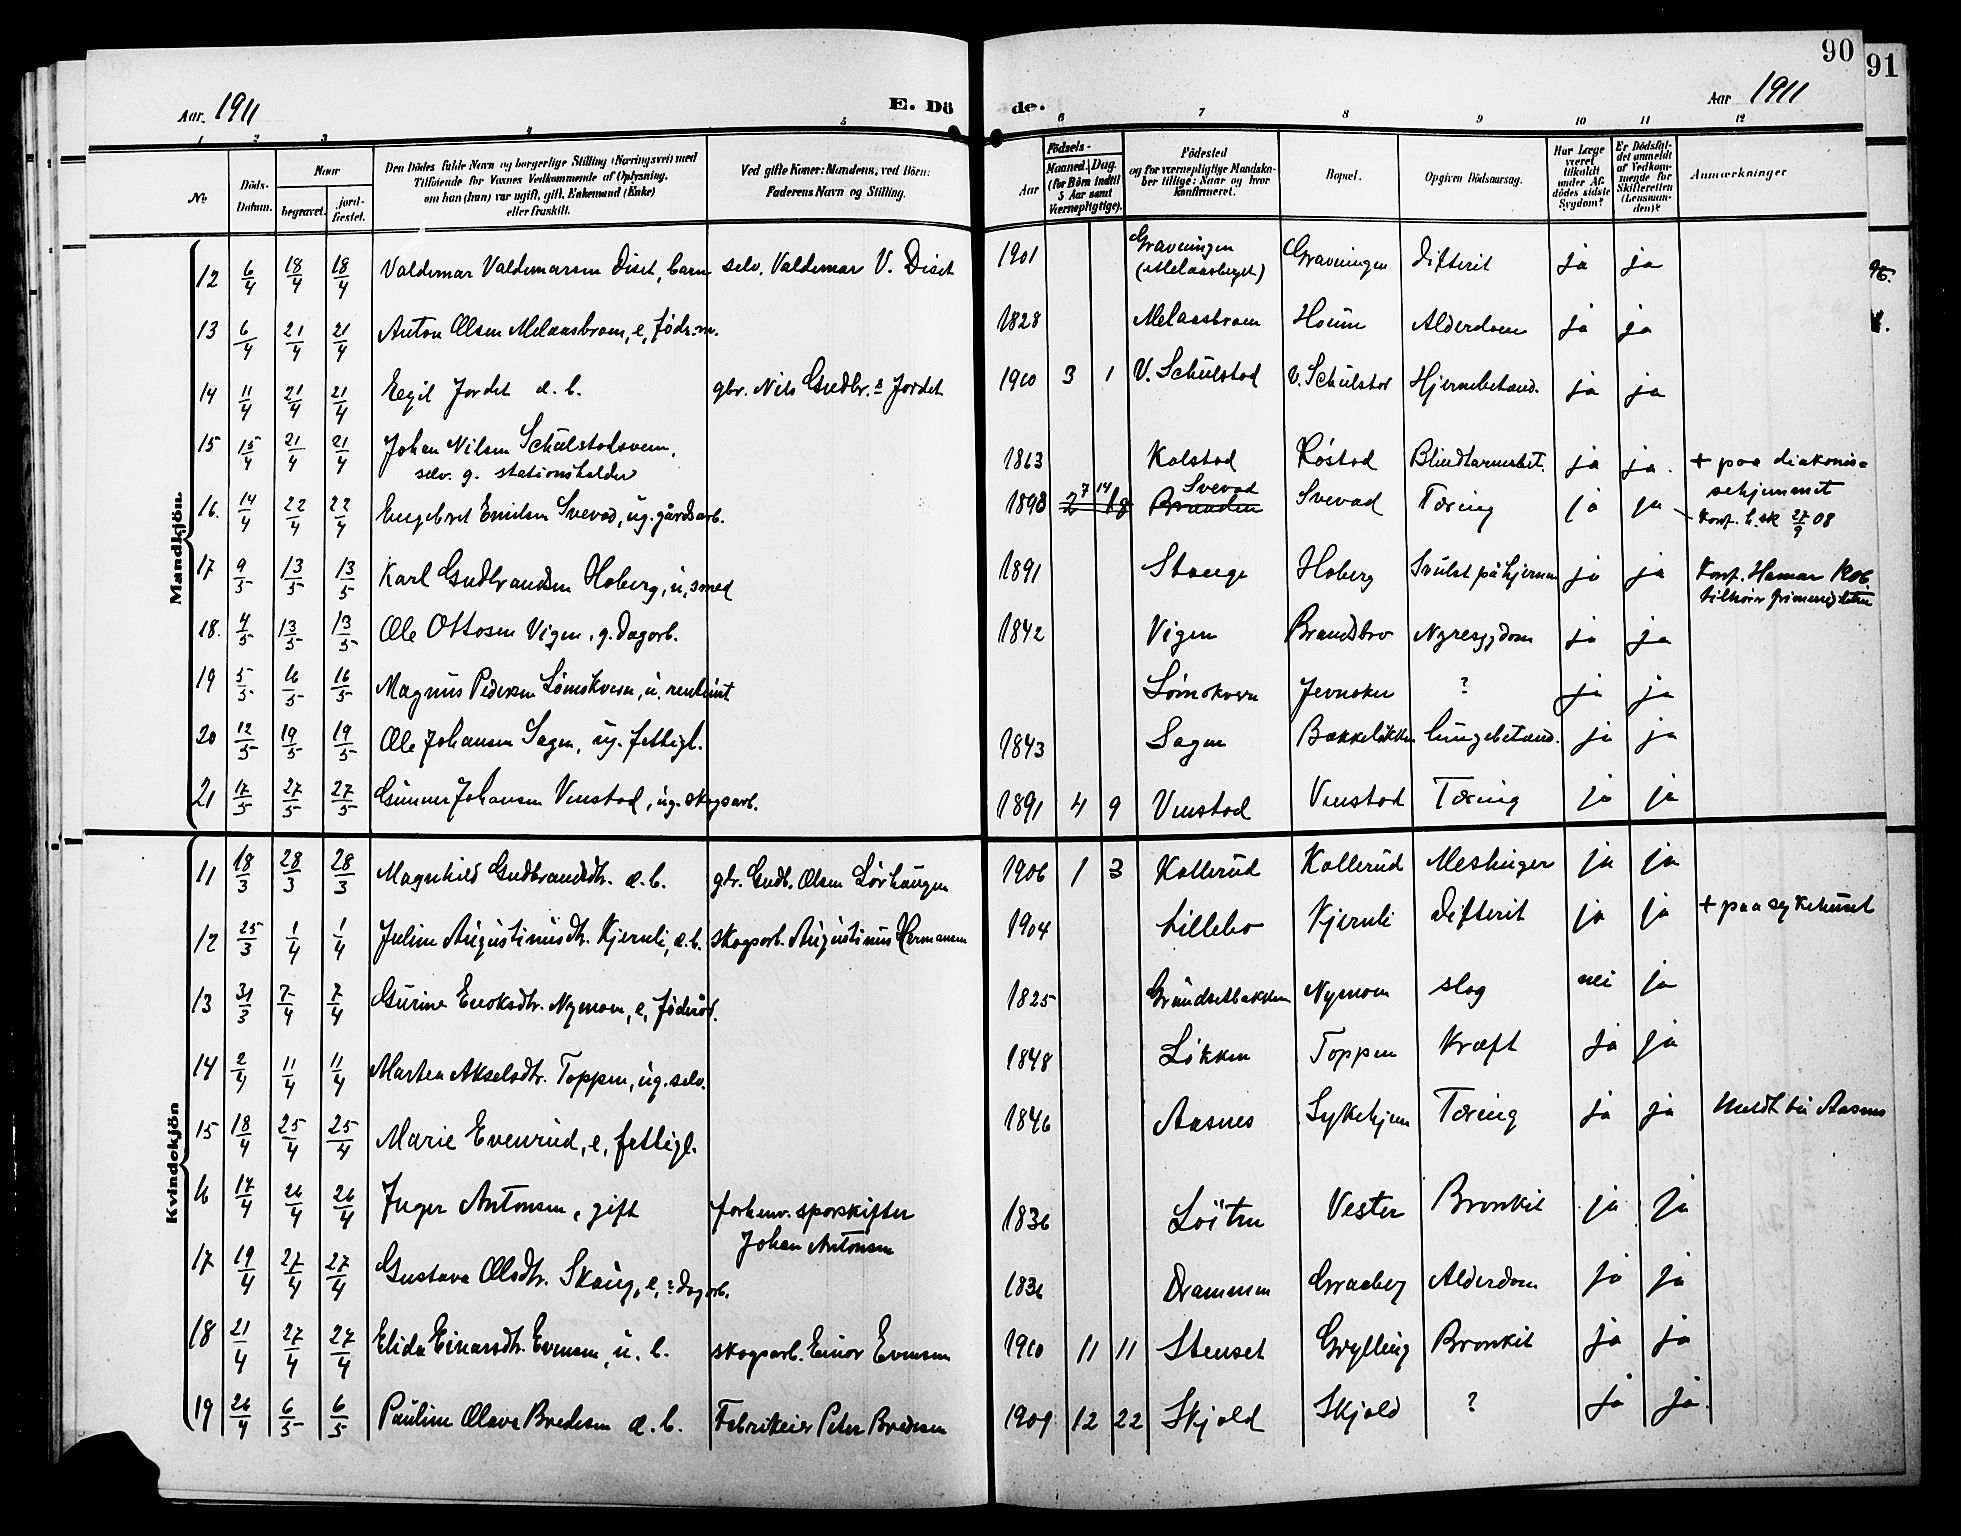 90
91
Aar 1911
E. Dö
de.
Aar 1911
1 2 3 4 5 6 7 8 9 10 11 12
No
Döds-
Datum.
Naar
begravet.
jord-
festet.
Den Dödes fulde Navn og borgerlige Stilling (Næringsvei) med
Tilføiende for Voxnes Vedkommende af Oplysning,
om han (hun) var ugift, gift, Enkemand (Enke)
eller fraskilt.
Ved gifte Koner: Mandens, ved Börn:
Faderens Navn og Stilling.
Aar
Födsels-
Maaned. Dag.
(for Börn indtil
5 Aar samt
Værnepligtige).
Födested
og for værnepligtige Mandska-
ber tillige: Naar og hvor
Konfirmeret.
Bopæl.
Opgiven Dödsaarsag.
Har Læge
været
tilkaldt
under Af-
dödes sidste
Sygdom?
Er Dödsfal-
det anmeldt
af Vedkom-
mende for
Skifteretten
(Lensman-
den)?
Anmærkninger
Mandkjön.
12 6/4 18/4 18/4 Valdemar Valdemarsen Diset, barn selv. Valdemar V. Diset 1901 Graveningen (Melaasberget) Graveningen Difterit ja ja
13 6/4 21/4 21/4 Anton Olsen Melaasbraen, e, föds.m. 1828 Melaasbraen Hoem Alderdom ja ja
14 11/4 21/4 21/4 Egil Jordet æ. b. gbr. Nils Gudbr.s Jordet 1910 3 1 V. Schulstad V. Schulstad Hjernebetænd. ja ja
15 15/4 21/4 21/4 Johan Nilsen Schulstadsveen,
selv. g. stationsholder 1863 Kolstad Löstad Blindtarmsbet. ja ja. + paa diakonis-
sehjemmet
16. 14/4 22/4 22/4 Engebret Emilsen Svevad, ug. gårdsarb. 1893 7 14 Svevad Svevad Tæring ja ja Konf. E. sk 27/9 08
17 9/5 13/5 13/5 Karl Gudbrandsen Hoberg, u, smed 1891 Stange Hoberg Svulst på hjernen ja ja Konf. Hamar 1906.
18. 4/5 13/5 13/5 Ole Ottosen Vigen, g. dagarb. 1842 Vigen Brandsbro Nyresygdom ja ja
19 5/5 16/5 16/5 Magnus Pedersen Lömokvern, u. rentenist Lömokvern Jevnaker ? ja ja
20 12/5 19/5 19/5 Ole Johansen Sagen, ug. fattigl. 1843 Sagen Bakkeløkken lungebetænd. ja ja
21 17/5 27/5 27/5 Gunner Johansen Vinstad, ug. skogsarb. 1891 4 9 Vinstad Vinstad Tæring ja ja
Kvindekjön
11 18/3 28/3 28/3 Magnhild Gudbrandsdtr. æ. b. gbr. Gudb. Olsen Lørhaugen 1906 1 3 Kollerud Kollerud Meslinger ja ja
12 25/3 1/4 1/4 Juline Augustinusdtr. Kjernli, æ. b. skogsarb. Augustinus Hermansen 1904 Lillebo Kjernli Difterit ja ja + paa sykehuset
13 31/3 7/4 7/4 Gurine Enoksdtr. Nymoen, e, föderåd. 1825 Grundsetbakken Nymoen slag nei ja
14 2/4 11/4 11/4 Martea Akselsdtr. Toppen, ug. selv. 1848 Løkken Toppen Kræft ja ja
15 18/4 25/4 25/4 Marie Evenrud, e, fattigl. 1846 Aasnes Sykehjem Tæring ja ja Meldt til Aasnes
16 17/4 26/4 26/4 Inger Antonsen, gift forhenv. sporskifter
Johan Antonsen 1836 Löiten Vester Bronkit ja ja
17 19/4 27/4 27/4 Gustava Olsdtr. Skaug, e, dagarb. 1836 Drammen Graaberg Alderdom ja ja
18 21/4 27/4 27/4 Elida Einarsdtr. Evensen, u. b. skogsarb. Einar Evensen 1910 11 11 Stenset Grylling Bronkit ja ja
19 26/4 6/5 6/5 Pauline Olava Bredesen æ. b. Fabrikeier Peter Bredesen 1909 12 22 Skjold Skjold ? ja ja.